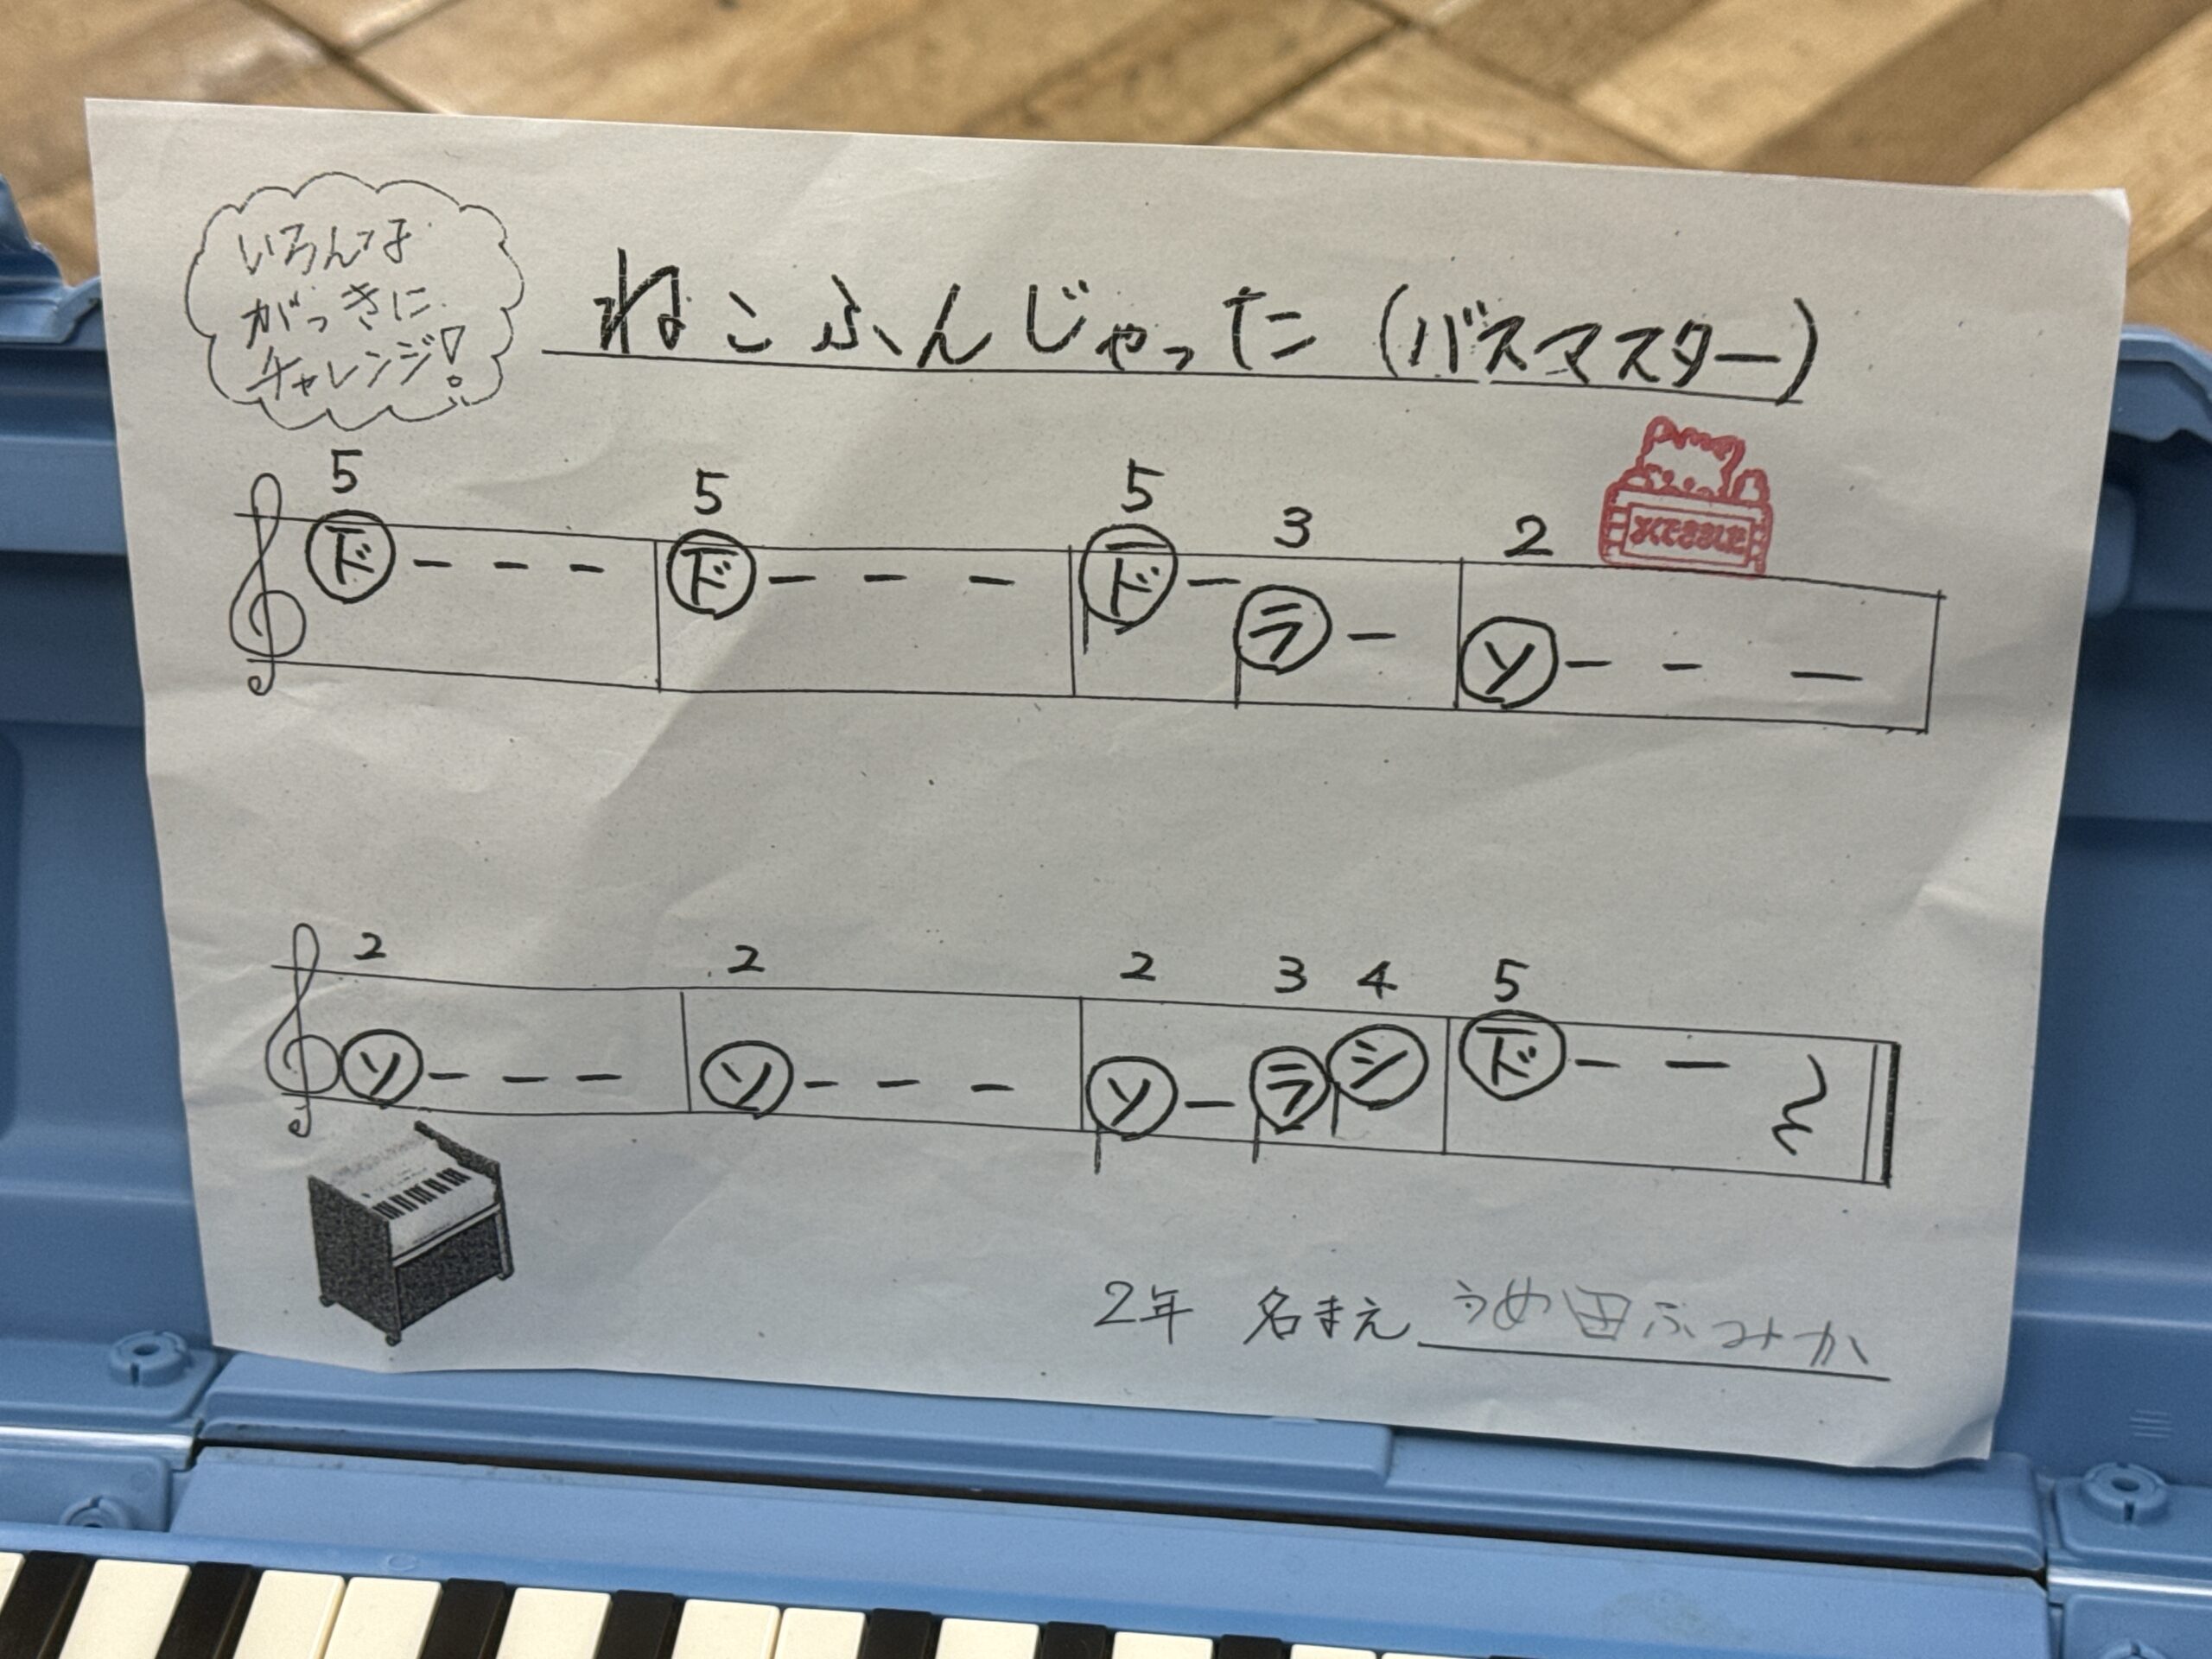 いろんな
がっきに
チャレンジ!
ねこふんじゃった(バスマスター)
5 5 5 3 2
ド - - - ド - - - ド - ラ - ソ - - -
よくできました
2 2 2 3 4 5
ソ - - - ソ - - - ソ - ラ シ ド - -
2年 名まえ うめ田ふみか